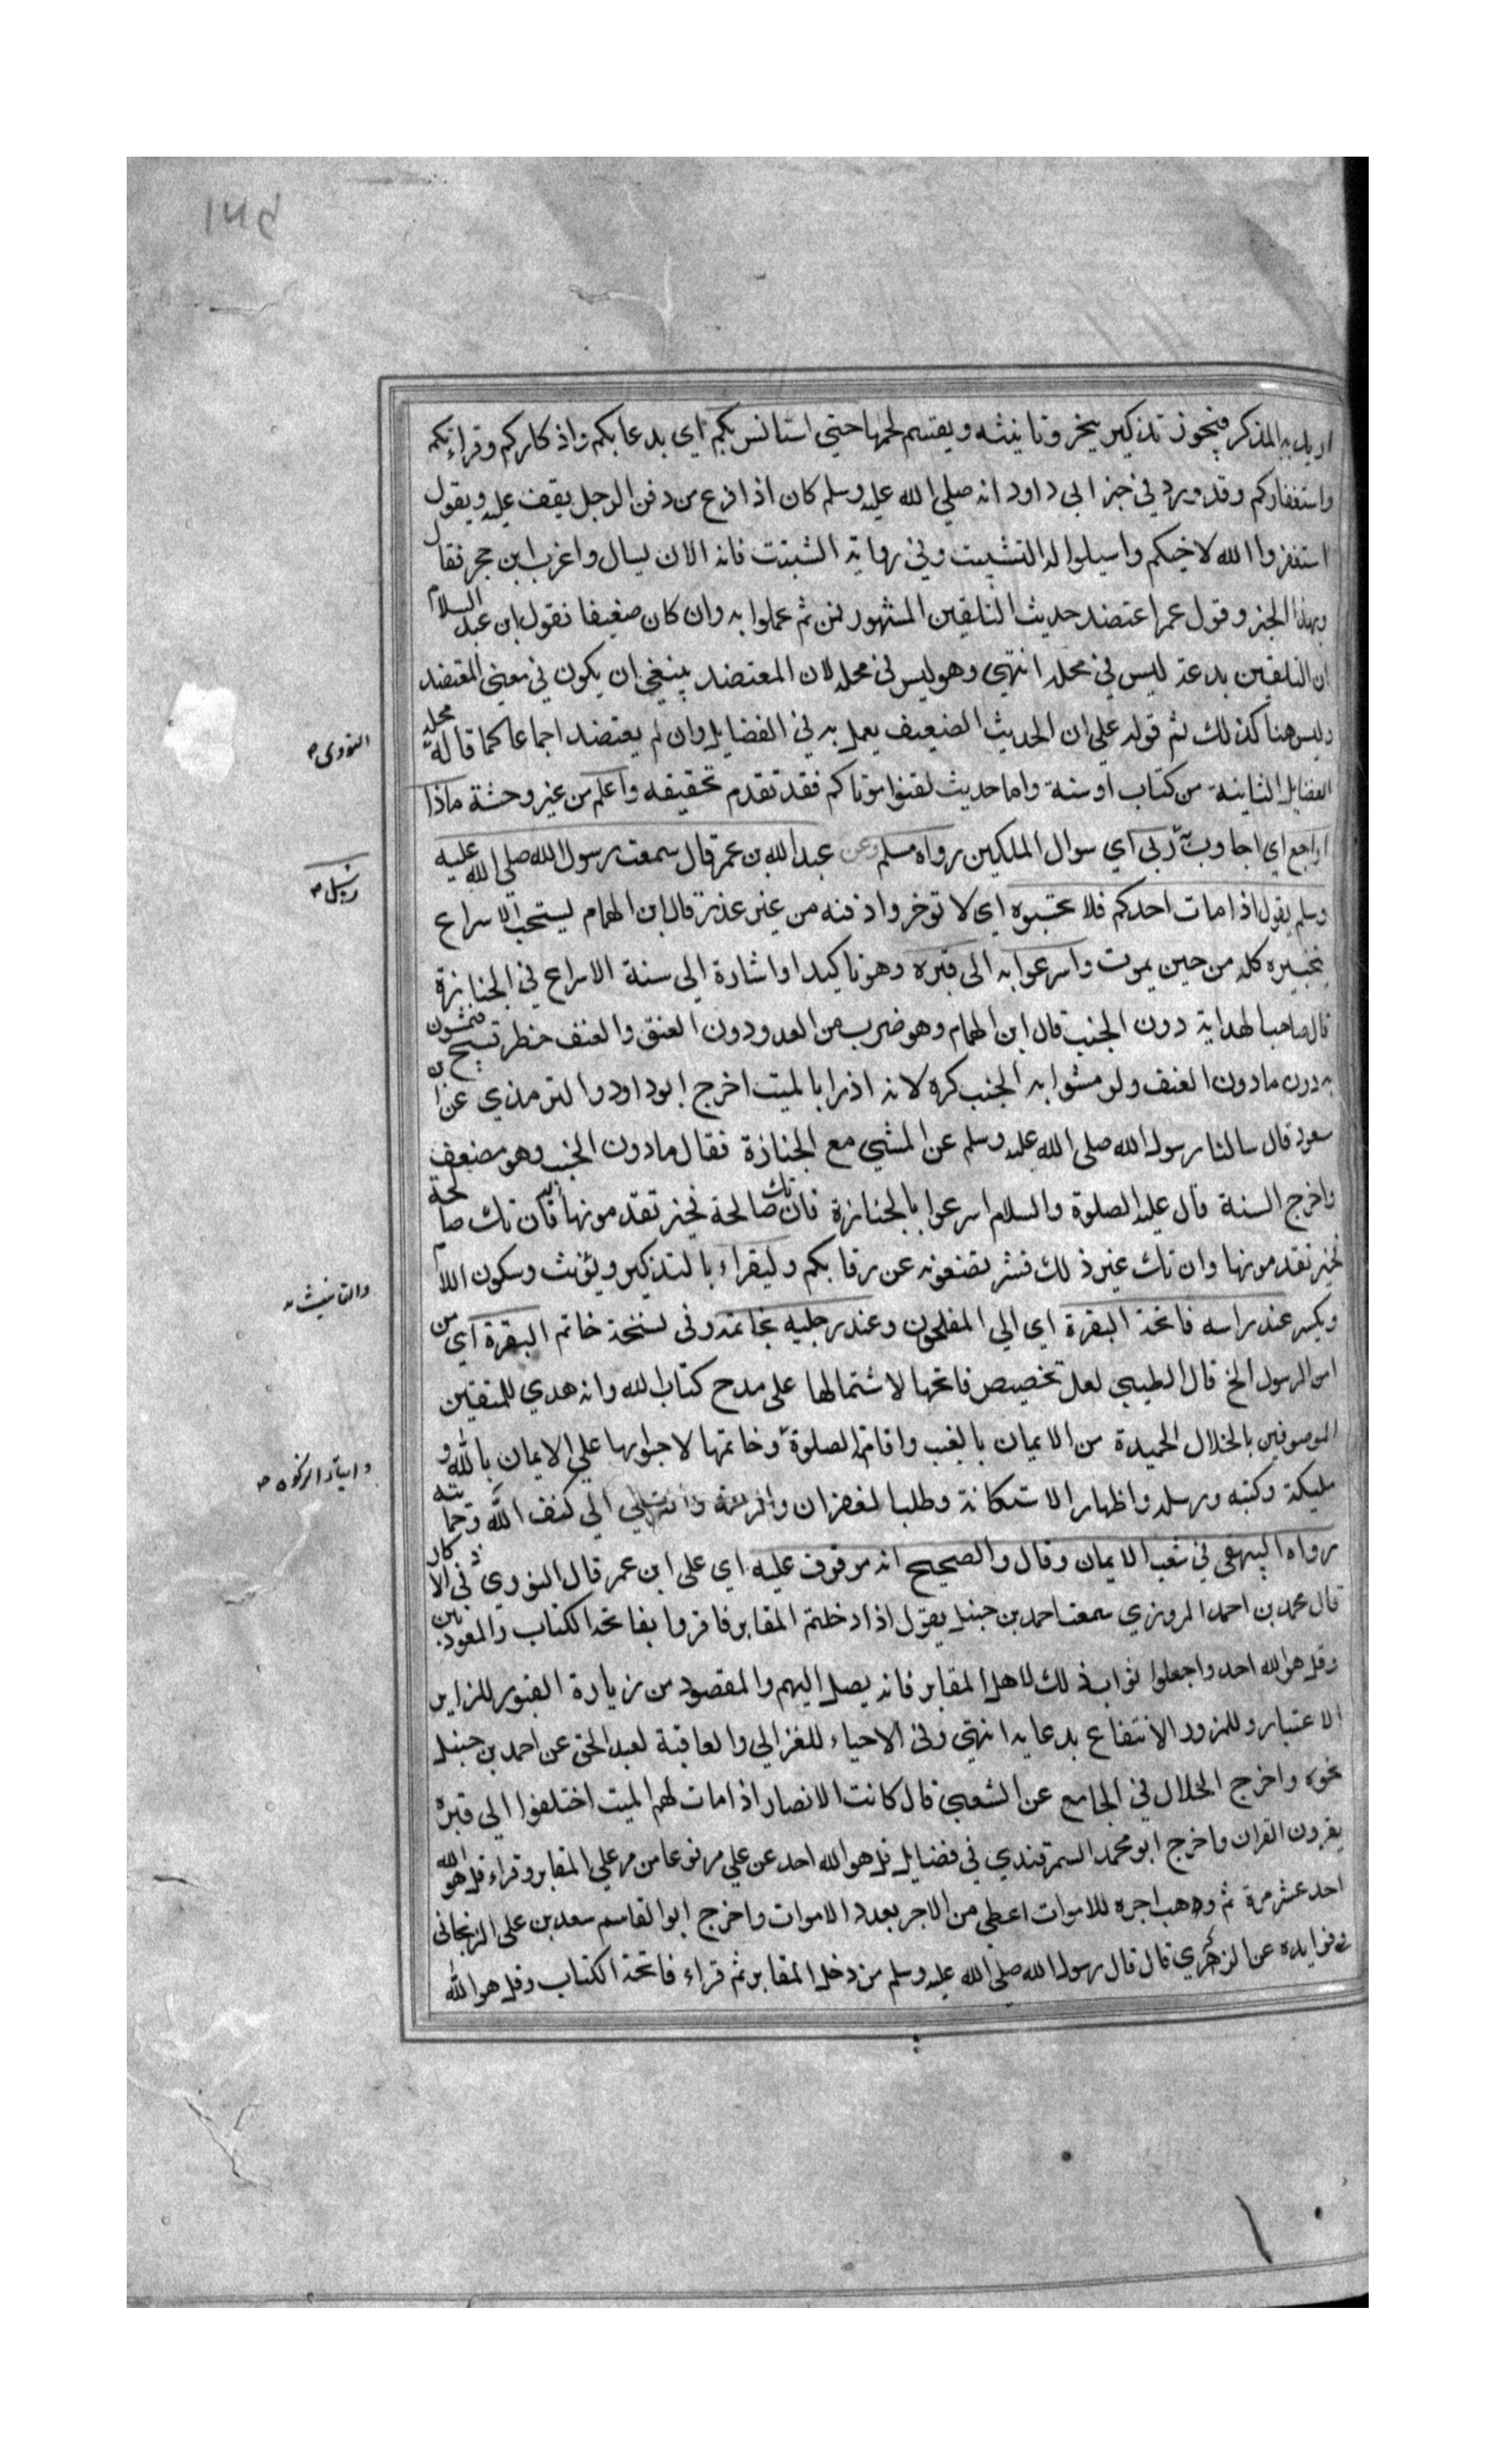 اريد به المذكر فيجوز تذكير ينحر وتانيثه ويقسم لحمها حتي استانس بكم اي بدعايكم واذكاركم وقراءتكم
واستغفاركم وقد ورد في خبر ابي داود انه صلي الله عليه وسلم كان اذا فرغ من دفن الرجل يقف عليه ويقول
استغفروا الله لاخيكم واسيلوا له التثبيت وفي رواية التثبت فانه الان يسال واغرب ابن حجر فقال
وبهذا الخبر وقول عمرا اعتضد حديث التلقين المشهور فمن ثم عملوا به وان كان ضعيفا فقول ابن عبد السلام
ان التلقين بدعة ليس في محله انتهي وهو ليس في محله لان المعتضد ينبغي ان يكون في معني المعتضد
وليس هنا كذلك ثم قوله علي ان الحديث الضعيف يعمل به في الفضايل وان لم يعتضد اجماعا كما قاله محله
الفضايل الثابتة من كتاب او سنة واما حديث لقنوا موتاكم فقد تقدم تحقيقه واعلم من غير وحشة ماذا
اراجع اي اجاوب به رسل ربي اي سوال الملكين رواه مسلم وعن عبد الله بن عمر قال سمعت رسول الله صلي الله عليه
وسلم يقول اذا مات احدكم فلا تحبسوه اي لا توخروا دفنه من غير عذر قال ابن الهمام يستحب الاسراع
بتجهيزه كله من حين يموت واسرعوا به الى قبره وهو تاكيد او اشارة الي سنة الاسراع في الجنازة
قال صاحب الهداية دون الخبب قال ابن الهمام وهو ضرب من العدو دون العنق والعنف خطر تسبح فيمشون
به دون مادون العنف ولو مشوا به الخبب كره لانه ازدرا بالميت اخرج ابو داود والترمذي عن ابن
سعود قال سالنا رسول الله صلى الله عليه وسلم عن المشي مع الجنازة فقال مادون الخبب وهو مضعف
واخرج الستة قال عليه الصلوة والسلام اسرعوا بالجنازة فان تك صالحة فخير تقدمونها اليه فان تك صالحة
فخير تقدمونها وان تك غير ذلك فشر تضعونه عن رقابكم وليقراء بالتذكير ويؤنث وسكون اللام
ويكسر عند راسه فاتحة البقرة اي الي المفلحون وعند رجليه بخاتمة وفي نسخة خاتم البقرة اي من
امن الرسول الخ قال الطيبي لعل تخصيص فاتحتها لاشتمالها على مدح كتاب الله وانه هدي للمتقين
الموصوفين بالخلال الحميدة من الايمان بالغيب واقامة الصلوة وخاتمتها لاحتوايها علي الايمان بالله و
مليكته وكتبه ورسله واظهار الاستكانة وطلب الغفران والرحمة والتولي الي كنف الله وحمايته
رواه البيهقي في شعب الايمان وقال والصحيح انه موقوف عليه اي على ابن عمر قال النووي في الاذكار
قال محمد بن احمد المروزي سمعت احمد بن حنبل يقول اذا دخلتم المقابر فاقروا بفاتحة الكتاب والمعوذتين
وقل هو الله احد واجعلوا ثواب ذلك لاهل المقابر فانه يصل اليهم والمقصود من زيارة القبور للزاير
الاعتبار وللمزور الانتفاع بدعايه انتهي وفي الاحياء للغزالي والعاقبة لعبد الحق عن احمد بن حنبل
نحوه واخرج الخلال في الجامع عن الشعبي قال كانت الانصار اذا مات لهم الميت اختلفوا الي قبره
يقرون القران واخرج ابو محمد السمرقندي في فضايل قل هو الله احد عن علي مرفوعا من مر علي المقابر وقراء قل هو الله
احد عشر مرة ثم وهب اجره للاموات اعطي من الاجر بعدد الاموات واخرج ابو القاسم سعد بن على الزنجاني
في فوايده عن الزهري قال قال رسول الله صلى الله عليه وسلم من دخل المقابر ثم قراء فاتحة الكتاب وقل هو الله
النووي
رسل
والتانيث
وايتاء الزكوة